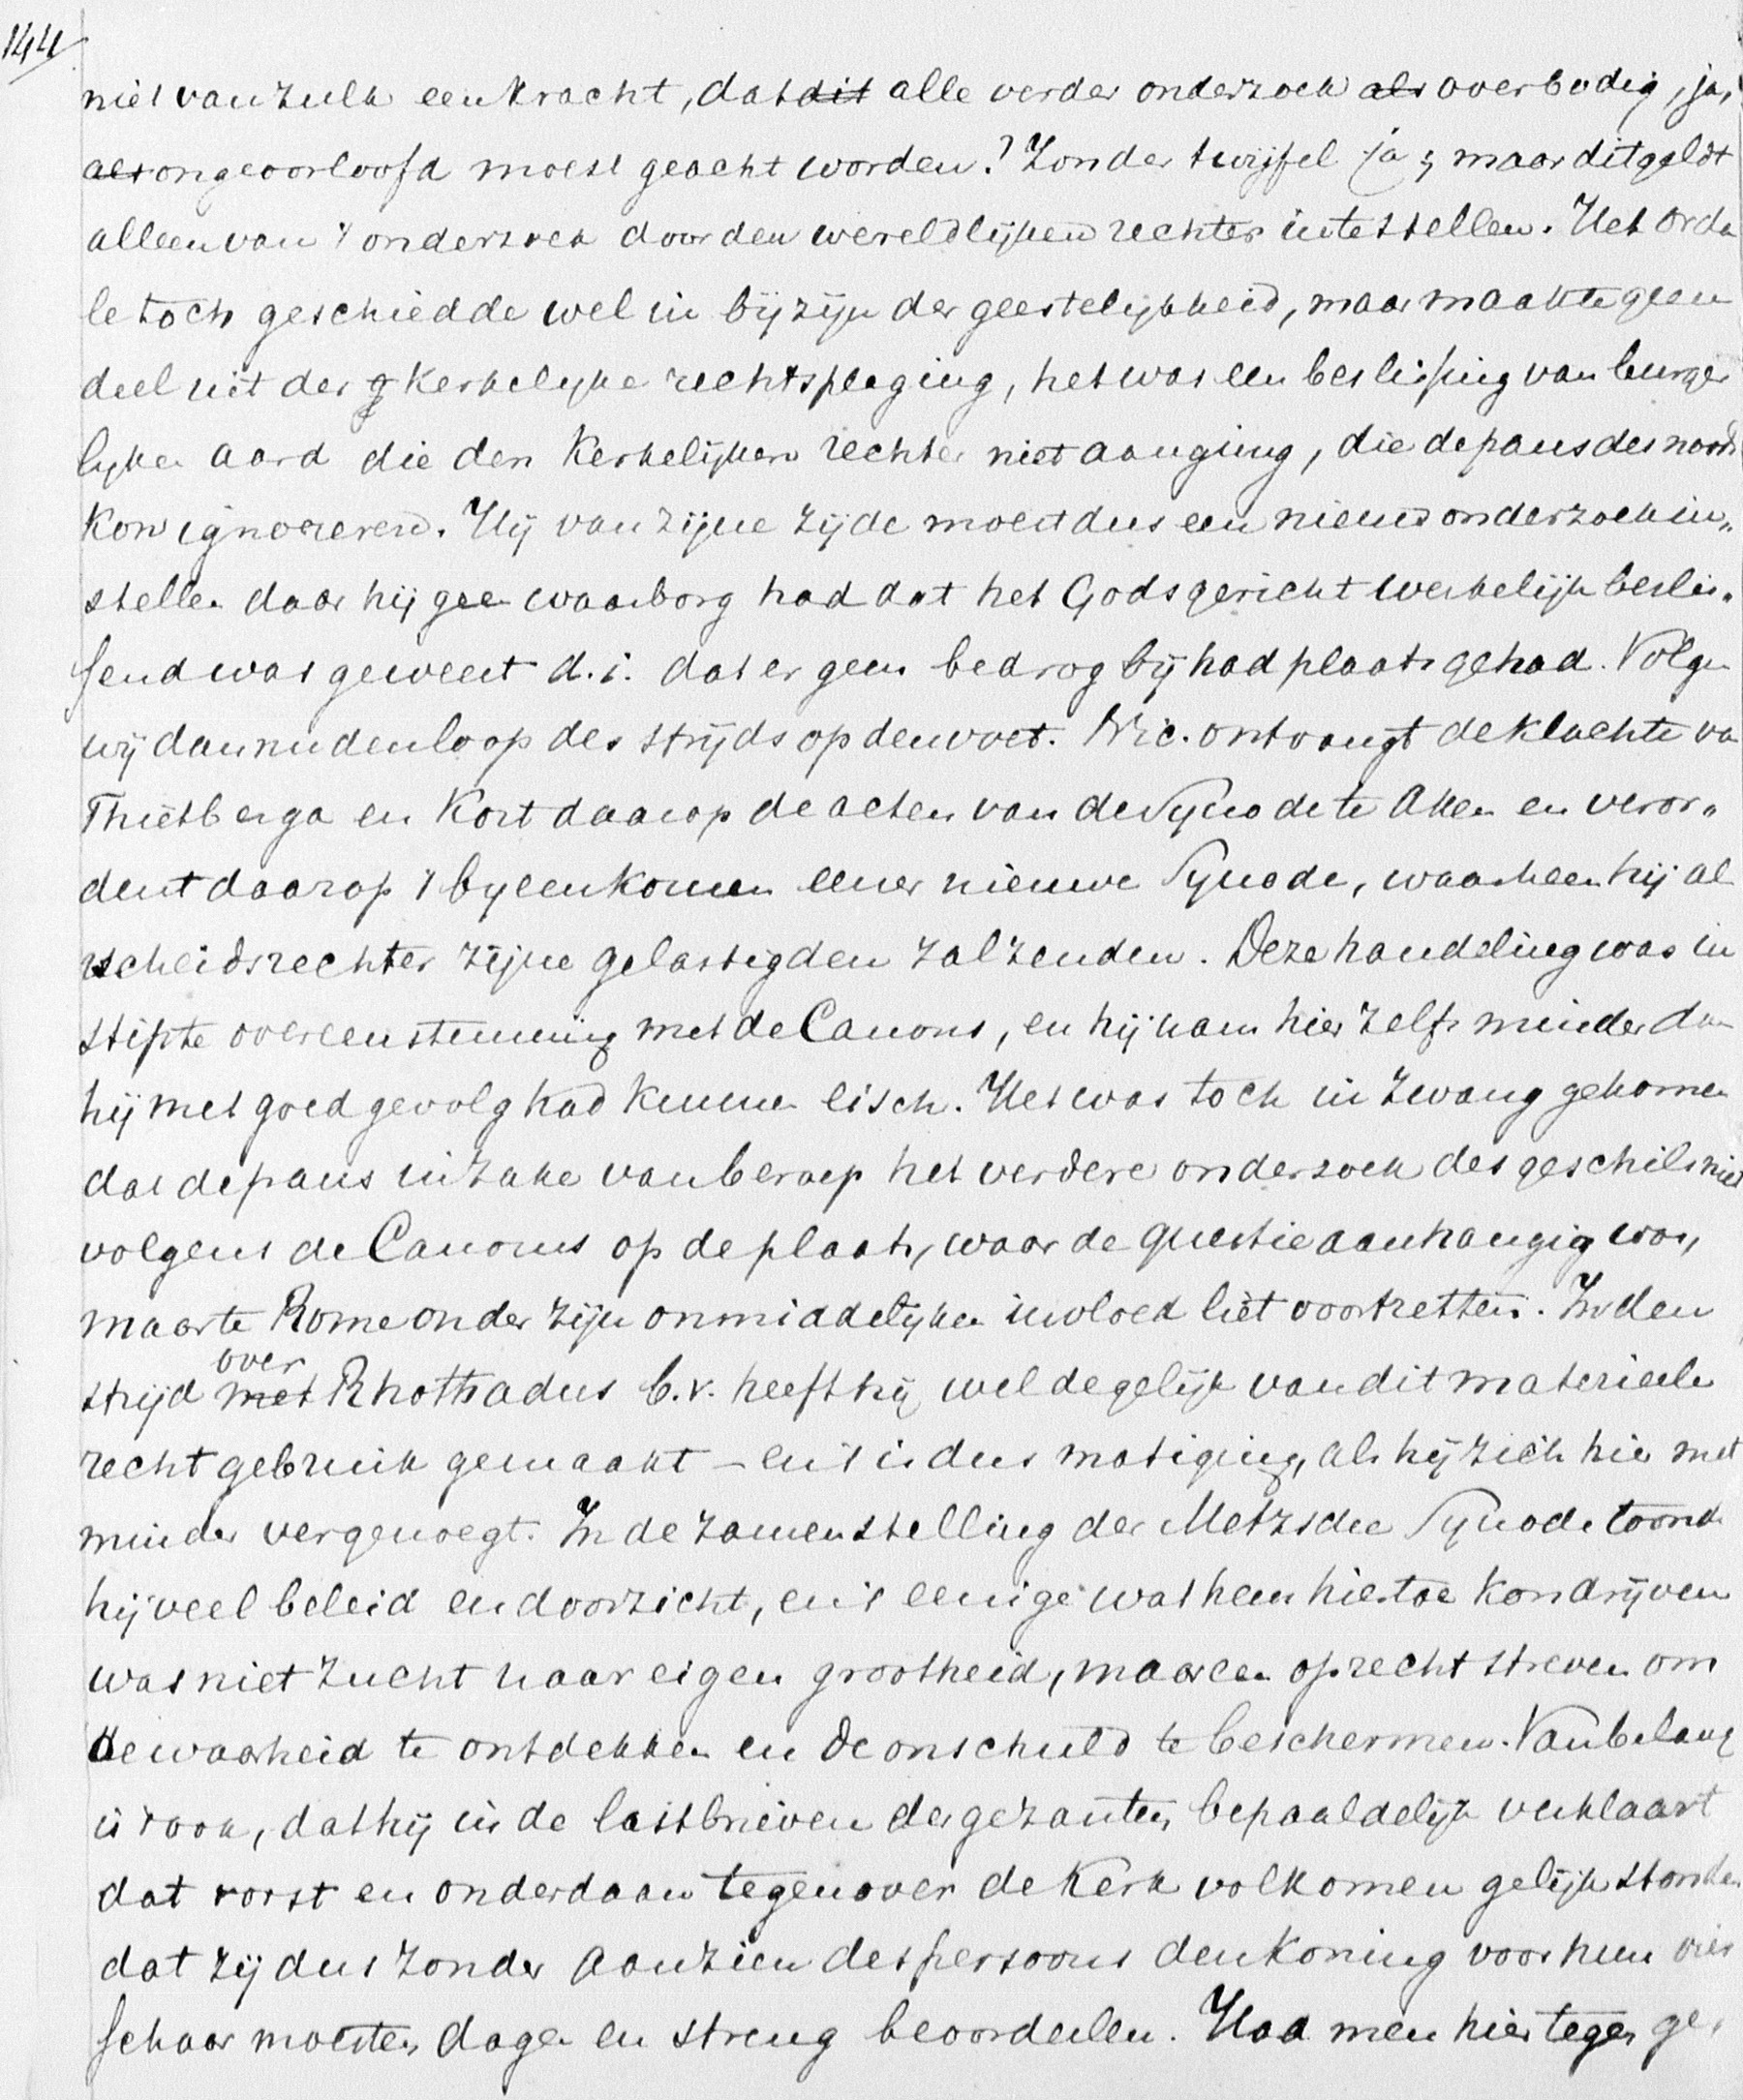 144
niet van zulk een kracht, dat dit alle verder onderzoek als overbodig, ja,
als ongeoorloofd moest geacht worden? Zonder twijfel ja; maar dit geldt
alleen van 't onderzoek door den wereldlijken rechter in te stellen. Het orda
le toch geschiedde wel in bijzijn der geestelijkheid, maar maakte geen
deel uit der kerkelijke rechtspleging, het was een beslissing van burger
lijken aard die den kerkelijken rechter niet aanging, die de paus des noods
kon ignoreren. Hij van zijne zijde moest dus een nieuw onderzoek in„
stellen daar hij geen waarborg had dat het Godsgericht werkelijk beslis„
send was geweest d.i. dat er geen bedrog bij had plaats gehad. Volgen
wij dan nu den loop des strijds op den voet. Nic. ontvangt de klachte van
Thietberga en kort daarop de acten van de Synode te Aken en veror„
dent daarop 't byeenkomen eener nieuwe Synode, waarheen hij als
scheidsrechter zijne gelastigden zal zenden. Deze handeling was in
stipte overeenstemming met de Canons, en hij nam hier zelfs minder dan
hij met goed gevolg had kunnen eisch. Het was toch in zwang gekomen
dat de paus in zake van beroep het verdere onderzoek des geschils niet
volgens de Canons op de plaats, waar de questie aanhangig was,
maar te Rome onder zijn onmiddelijken invloed liet voortzetten. In den
over
strijd met Rhothadus b.v. heeft hij wel degelijk van dit materieele
recht gebruik gemaakt – en 't is dus matiging, als hij zich hier met
minder vergenoegt. In de zamenstelling der Metzsche Synode toonde
hij veel beleid en doorzicht, en 't eenige wat hem hiertoe kon drijven
was niet zucht naar eigen grootheid, maar een oprecht streven om
de waarheid te ontdekken en de onschuld te beschermen. Van belang
is 't ook, dat hij in de lastbrieven der gezanten bepaaldelijk verklaart
dat vorst en onderdaan tegenover de Kerk volkomen gelijk stonden
dat zij dus zonder aanzien des persoons den koning voor hun vier
schaar moesten dagen en streng beoordeelen. Had men hier tegen ge„